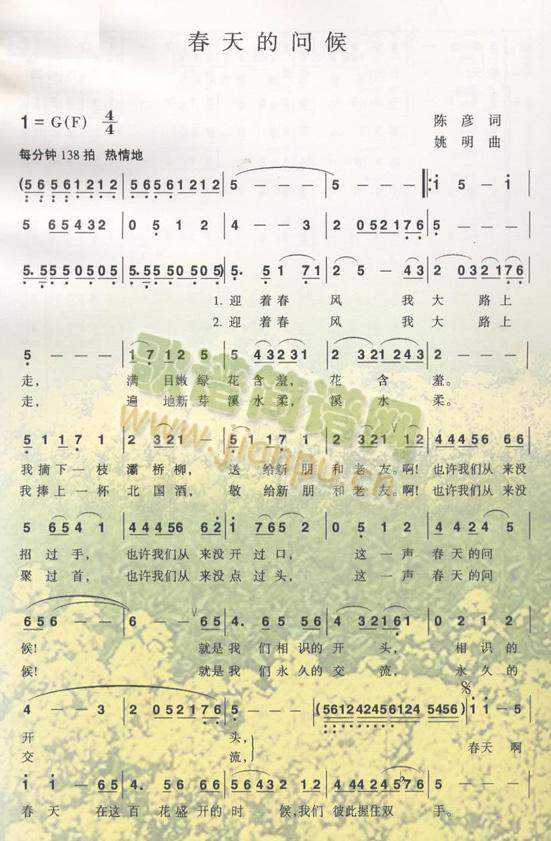 春天的问候
1=G(F) 4/4
陈彦 词
每分钟138拍 热情地
姚明 曲
(5 6 5 6 1 2 1 2 | 5 6 5 6 1 2 1 2 | 5 - - - | 5 - - - ‖: 1 5 - 1 |
5 6 5 4 3 2 | 0 5 1 2 | 4 - - 3 | 2 0 5 2 1 7 6 | 5 - - - |
5. 5 5 5 0 5 0 5 | 5. 5 5 5 0 5 0 5) | 5. 5 1 7 1 | 2 5 - 4 3 | 2 0 3 2 1 7 6 |
1.迎着春 风 我大 路上
2.迎着春 风 我大 路上
5 - - - | 1 7 1 2 5 | 5 4 3 2 3 1 | 2 3 2 1 2 4 3 | 2 - - - |
走, 满 目嫩绿 花含羞, 花 含 羞。
走, 遍 地新芽 溪水柔, 溪 水 柔。
5 1 1 7 1 | 2 3 2 1 - | 5 5 6 1 2 | 3 3 2 1 1 2 | 4 4 4 5 6 6 6 |
我摘下一枝 灞桥柳, 送 给新朋 和老友。啊! 也许我们从 来没
我捧上一杯 北国酒, 敬 给新朋 和老友。啊! 也许我们从 来没
5 6 5 4 1 | 4 4 4 5 6 6 2 | 1 7 6 5 2 | 0 5 1 2 | 4 4 2 4 5 |
招 过手, 也许我们从 来没 开 过口, 这一声 春天的问
聚 过首, 也许我们从 来没 点 过头, 这一声 春天的问
6 5 6 - - | 6 - 6 5 | 4. 6 5 5 6 | 4 2 1 - | 0 2 1 2 |
候! 就是我 们相识的 开 头, 相识的
候! 就是我 们永久的 交 流, 永久的
4 - - 3 | 2 0 5 2 1 7 6 | 5 - - - | (5612424562456124 5456) | 1 1 - 5 |
开 头,
交 流,
春天 啊
1 1 - 5 | 4. 5 6 6 6 | 5 6 5 4. 5 | 3 2 0 1 2 | 4 4 4 2 4 5 7 6 |
春天 在这百 花盛开的时 候,我们 彼此握住双 手。
歌谱简谱网
www.jianpu.cn